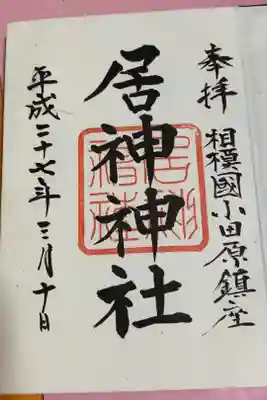 奉拝
相模國小田原鎮座
居神神社
平成二十七年三月十日